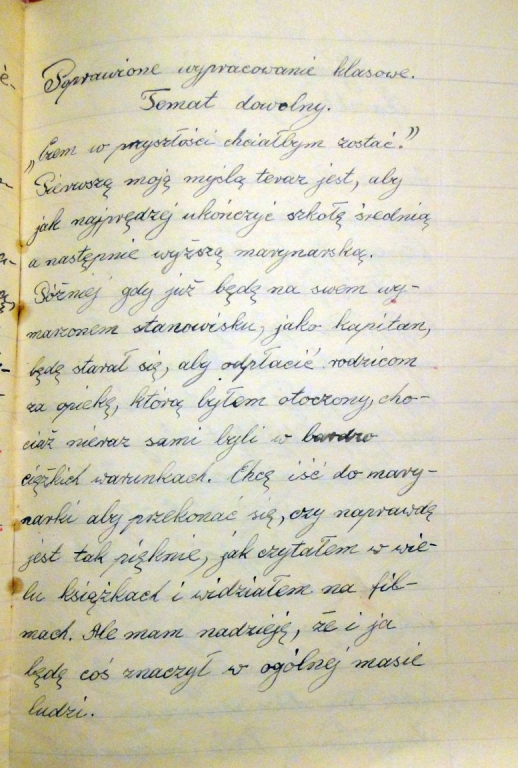 Poprawione wypracowanie klasowe.
Temat dowolny.
„Czem w przyszłości chciałbym zostać.”
Pierwszą moją myślą teraz jest, aby
jak najprędzej ukończyć szkołę średnią
a następnie wyższą marynarską.
Później gdy już będę na swem wy-
marzonem stanowisku, jako kapitan,
będę starał się, aby odpłacić rodzicom
za opiekę, którą byłem otoczony, cho-
ciaż nieraz sami byli w bardzo
ciężkich warunkach. Chcę iść do mary-
narki aby przekonać się, czy naprawdę
jest tak pięknie, jak czytałem w wie-
lu książkach i widziałem na fil-
mach. Ale mam nadzieję, że i ja
będę coś znaczył w ogólnej masie
ludzi.